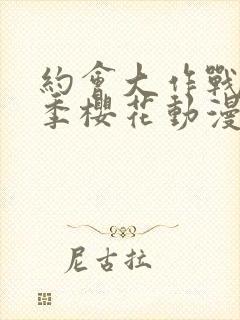 約會大作戰
季櫻花動漫
尼古拉